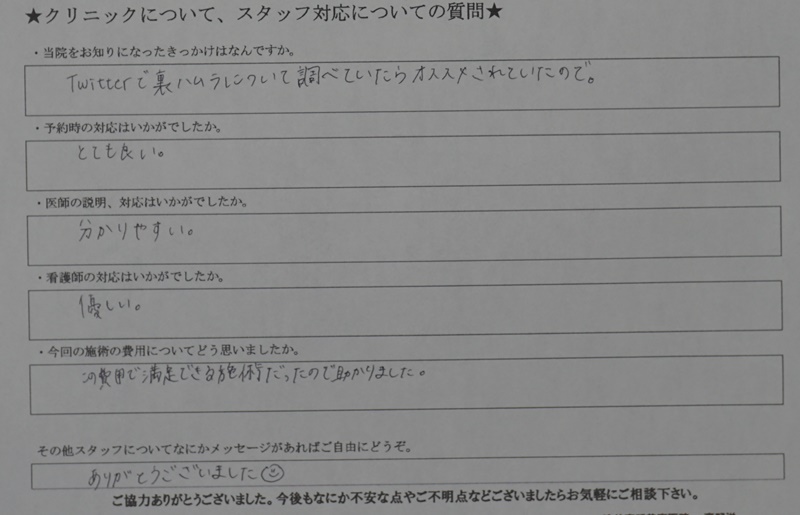 ★クリニックについて、スタッフ対応についての質問★
・当院をお知りになったきっかけはなんですか。
Twitterで裏ハムラについて調べていたらオススメされていたので。
・予約時の対応はいかがでしたか。
とても良い。
・医師の説明、対応はいかがでしたか。
分かりやすい。
・看護師の対応はいかがでしたか。
優しい。
・今回の施術の費用についてどう思いましたか。
この費用で満足できる施術だったので助かりました。
その他スタッフについてなにかメッセージがあればご自由にどうぞ。
ありがとうございました☺
ご協力ありがとうございました。今後もなにか不安な点やご不明点などございましたらお気軽にご相談下さい。